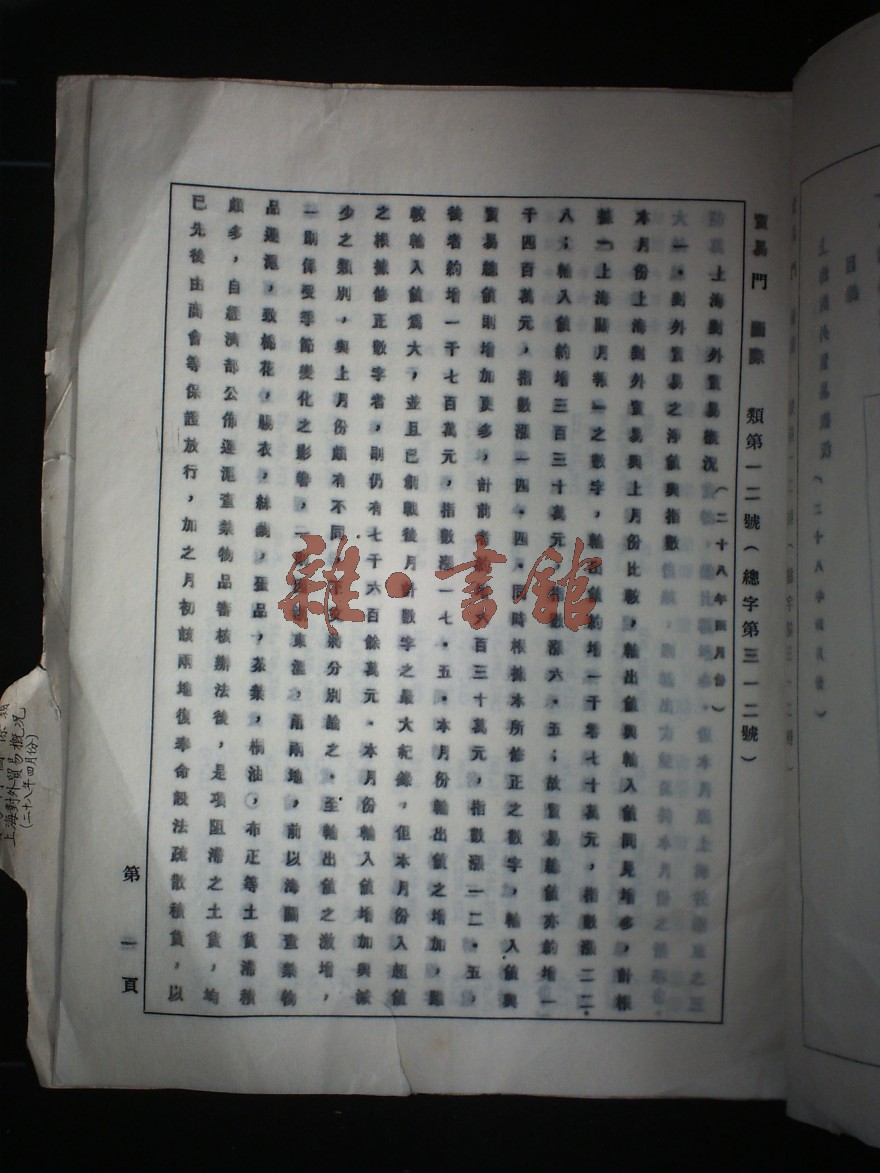 貿易門 國際 類第一二號(總字第三一二號)
上海對外貿易概況(二十八年四月份)
一・對外貿易之淨值與指數
本月份上海對外貿易與上月份比較,輸出值與輸入值間見增多,計根
據「上海關月報」之數字,輸出值約增一千零七十萬元,指數漲二二・
八;輸入值約增三百三十萬元,指數漲六・五;故貿易總值亦約增一
千四百萬元,指數漲一四・四。同時根據本所修正之數字,輸入值與
貿易總值則增加更多,計前者約 百三十萬元,指數漲一二・五,
後者約增一千七百萬元,指數漲一七・五。本月份輸出值之增加,雖
較輸入值為大,並且已創戰後月計數字之最大紀錄,但本月份入超值
之根據修正數字者,則仍有七千六百餘萬元。本月份輸入值增加與減
少之類別,與上月份頗有不同, 分別論之。至輸出值之激增,
一則係受季節變化之影響, 兩地,前以海關查禁物
品運滬,致棉花,腸衣,絲織,蛋品,茶葉,桐油,布正等土貨滯積
頗多,自經濟部公佈運滬查禁物品審核辦法後,是項阻滯之土貨,均
已先後由商會等保證放行,加之月初該兩地復奉命設法疏散積貨,以
第一頁
上海對外貿易概況
(二十八年四月份)
雜・書館